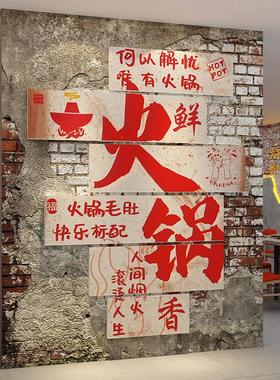 何以解忧
唯有火锅
HOT
POT
鲜
火
cheers
福
火锅毛肚
快乐标配
锅
人间烟火
滚滚人生
香